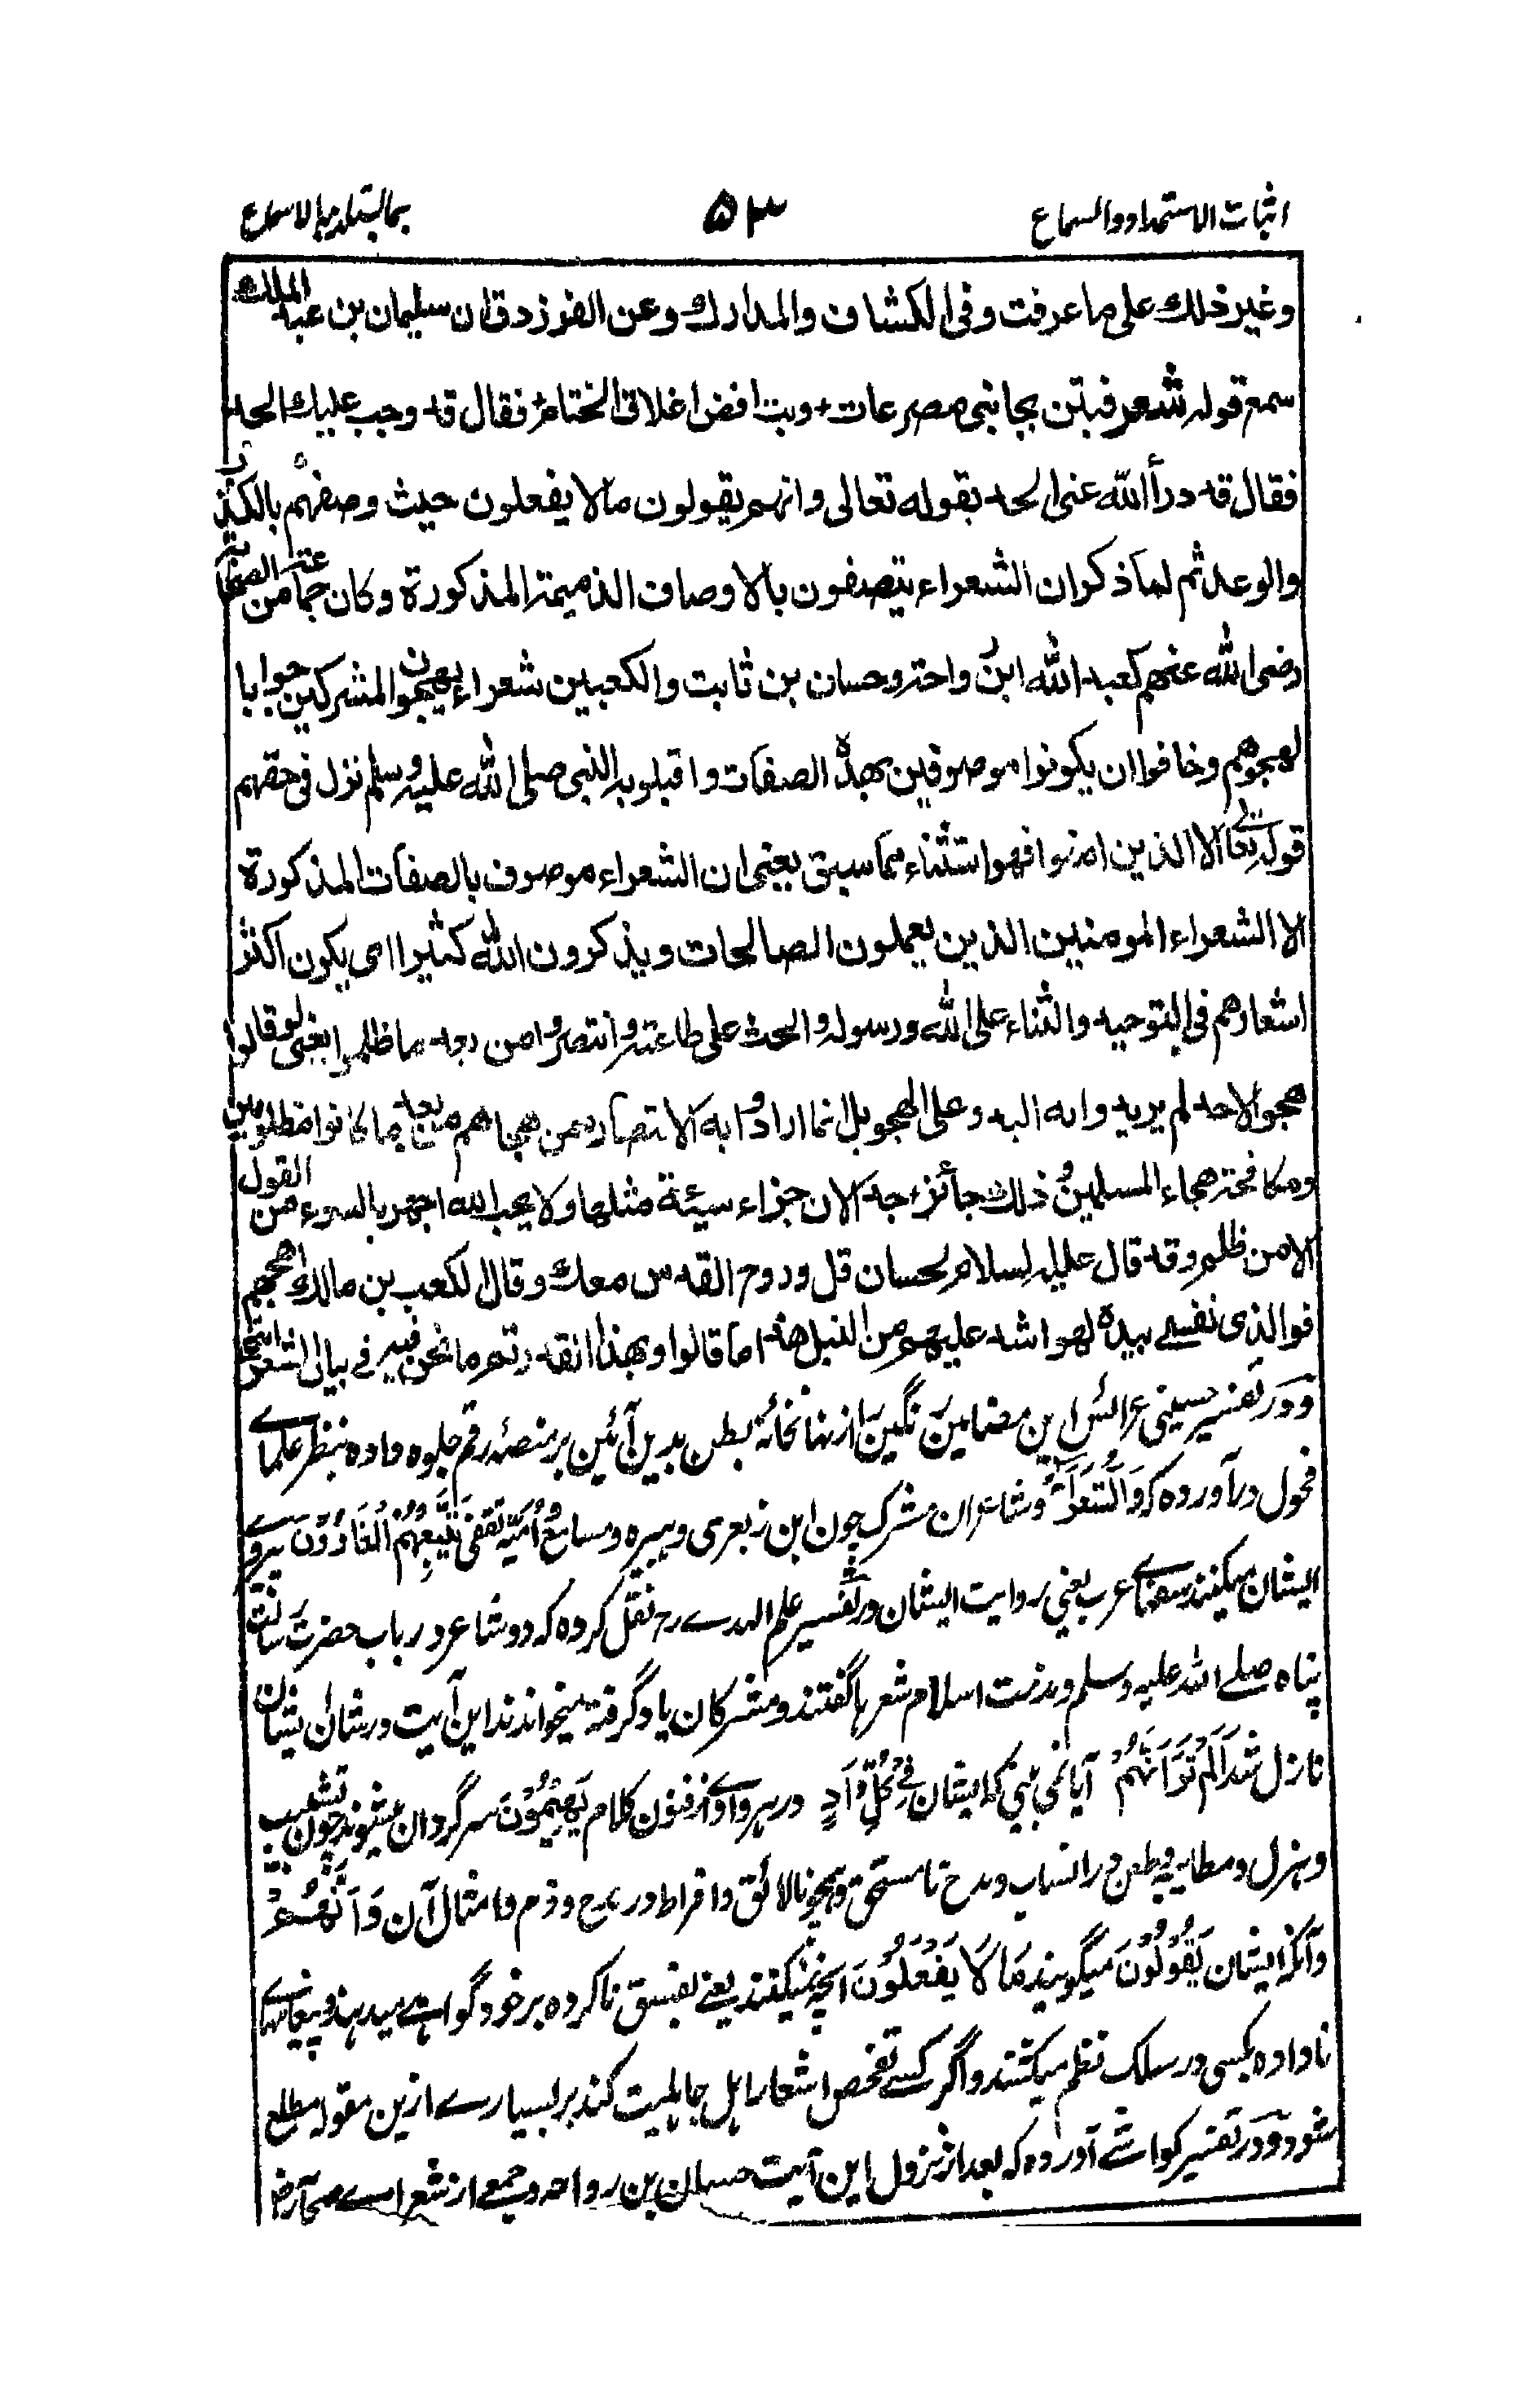 اثبات الاستمداد والسماع ۵۳ بما يستلذ به الاسماع
وغير ذلك على ما عرفت وفى الكشاف والمدارك وعن الفرزدق ان سليمان بن عبد الملك
سمع قوله شعر فبتن بجانبى مصرعات + وبت افض اغلاق الختام فقال قد وجب عليك الحد
فقال قد درأ الله عنى الحد بقوله تعالى وانهم يقولون مالا يفعلون حيث وصفهم بالكذب
والوعد ثم لما ذكر ان الشعراء يتصفون بالاوصاف الذميمة المذكورة وكان جماعة من الصحابة
رضى الله عنهم كعبد الله ابن رواحة وحسان بن ثابت والكعبين شعراء يهجون المشركين جوابا
لهجوهم وخافوا ان يكونوا موصوفين بهذه الصفات واقبلوا به النبى صلى الله عليه وسلم نزل فى حقهم
قوله تعالى الا الذين امنوا فهو استثناء مما سبق يعنى ان الشعراء موصوف بالصفات المذكورة
الا الشعراء المومنين الذين يعملون الصالحات ويذكرون الله كثيرا اى يكون اكثر
اشعارهم فى التوحيد والثناء على الله ورسوله والحث على طاعته وانتصروا من بعد ما ظلموا يعنى لو قالوا
هجوا لاحد لم يريدوا به البدو على الهجو بل انما ارادوا به الانتصار ممن هجاهم من بعد ما كانوا مظلومين
ومكافحة هجاء المسلمين وذلك جائز جدا لان جزاء سيئة مثلها ولا يحب الله الجهر بالسوء من القول
الا من ظلم وقد قال عليه السلام لحسان قل وروح القدس معك وقال لكعب بن مالك اهجهم
فوالذى نفسى بيده لهو اشد عليهم من النبل هذا ما قالوا وبهذا القدر تم ما نحن فيه فى بيان الشعر
ودر تفسير حسينى عرائس اين مضامين رنگين را از نهانخانۀ بطن بدين آئين بر منصۀ رقم جلوه داده بنظر علماے
فحول درآورده كه وَالشُّعَرَآءُ وشاعران مشرك چون ابن زبعرى وهبيره ومسافع واُميّۀ ثقفى يَتَّبِعُهُمُ الْغَاوٗنَ پيروى
ايشان ميكنند سفهاے عرب يعنى روايت ايشان ودر تفسير علم الهدے رح نقل كرده كه دو شاعر در باب حضرت رسالت
پناه صلے الله عليه وسلم ومذمت اسلام شعرها گفتند ومشركان ياد گرفته ميخواندند اين آيت در شان ايشان
نازل شد اَلَمْ تَرَ اَنَّهُمْ آيا نمى بينى كه ايشان فِىْ كُلِّ وَادٍ در هر وادى از فنون كلام يَهِيْمُوْنَ سرگردان ميشوند چون تشبيب
وهزل ومطايبه وطعن در انساب ومدح نا مستحق وهجو نالائق وافراط در مدح وذم وامثال آن وَاَنَّهُمْ
وآنكه ايشان يَقُوْلُوْنَ ميگويند مَا لَا يَفْعَلُوْنَ آنچه نميكنند يعنے بفسق ناكرده بر خود گواهى ميدهند وپيغامهاے
ناداده بكسى در سلك نظم ميكشند واگر كسے تفحص اشعار اهل جاهليت كند بر بسيارے ازين مقوله مطلع
شود ودر تفسير كواشى آورده كه بعد از نزول اين آيت حسان بن رواحه وجمعے از شعراے صحابه رض